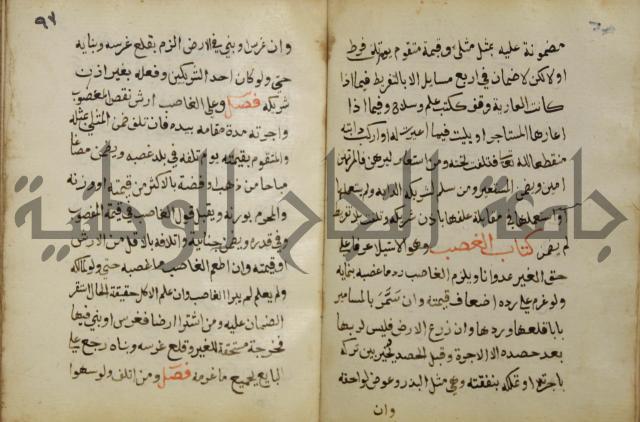 مضمونة عليه بمثل مثلي وقيمة متقوم يوم تلف فرط
اولا لكن لا ضمان في اربع مسايل الا بالتفريط فيما اذا
كانت العارية وقف ككتب علم وسلاح وفيما اذا
اعارها المستاجر او بليت فيما اعيرت له او اركب دابته
منقطعا لله تعالى فتلفت تحته ومن استعار ليرهن فالمرتهن
امين ويضمن المستعير ومن سلم لشريكه الدابة ولم يستعملها
او استعملها في مقابلة علفها باذن شريكه وتلفت بلا تفريط
لم يضمن كتاب الغصب وهو الاستيلا عرفا على
حق الغير عدوانا ويلزم الغاصب رد ما غصبه بنمايه
ولو غرم على رده اضعاف قيمته وان سمر بالمسامير
بابا قلعها وردها وان زرع الارض فليس لربها
بعد حصده الا الاجرة وقبل الحصد يخير بين تركه
باجرته او تملكه بنفقته وهي مثل البذر وعوض لواحقه
وان
٩٧
وان غرس او بنى في الارض الزم بقلع غرسه وبنايه
حتى ولو كان احد الشريكين وفعله بغير اذن
شريكه فصل وعلى الغاصب ارش نقص المغصوب
واجرته مدة مقامه بيده فان تلف ضمن المثلي بمثله
والمتقوم بقيمته يوم تلفه في بلد غصبه ويضمن مصاغا
مباحا من ذهب او فضة بالاكثر من قيمته او وزنه
والمحرم بوزنه ويقبل قول الغاصب في قيمة المغصوب
وفي قدره ويضمن جنايته واتلافه بالاقل من الارش
او قيمته وان اطعم الغاصب ما غصبه حتى ولو لمالكه
ولم يعلم لم يبرا الغاصب وان علم الاكل حقيقة الحال استقر
الضمان عليه ومن اشترا ارضا فغرس او بنى فيها
فخرجت مستحقة للغير وقلع غرسه وبناه رجع على
البايع بجميع ما غرمه فصل ومن اتلف ولو سهوا
جامعة النجاح الوطنية